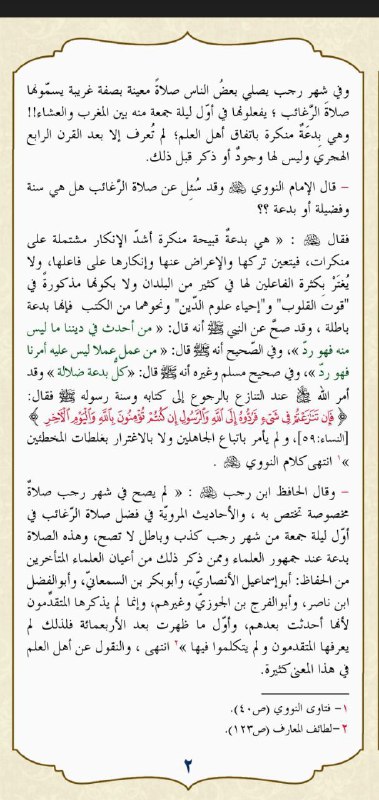 وفي شهر رجب يصلي بعضُ الناس صلاةً معينة بصفة غريبة يسمّونها
صلاةَ الرَّغائب ؛ يفعلونها في أوّل ليلة جمعة منه بين المغرب والعشاء!!
وهي بِدعَةٌ منكرة باتفاق أهل العلم؛ لم تُعرف إلا بعد القرن الرابع
الهجري وليس لها وجودٌ أو ذكر قبل ذلك.
– قال الإمام النووي ﵀ وقد سُئِل عن صلاة الرّغائب هل هي سنة
وفضيلة أو بدعة ؟؟
فقال ﵀ : « هي بدعةٌ قبيحة منكرة أشدّ الإنكار مشتملة على
منكرات، فيتعين تركها والإعراض عنها وإنكارها على فاعلها، ولا
يُغتَرّ بِكثرة الفاعلين لها في كثير من البلدان ولا بكونها مذكورةً في
"قوت القلوب" و"إحياء علوم الدّين" ونحوهما من الكتب فإنها بدعة
باطلة ، وقد صحّ عن النبي ﷺ أنه قال: « من أحدث في ديننا ما ليس
منه فهو ردّ »، وفي الصّحيح أنه ﷺ قال: « من عمل عملا ليس عليه أمرنا
فهو ردّ »، وفي صحيح مسلم وغيره أنه ﷺ قال: «كلُّ بدعة ضلالة» وقد
أمر الله ﷻ عند التنازع بالرجوع إلى كتابه وسنة رسوله ﷺ فقال:
﴿ فَإِن تَنَازَعْتُمْ فِي شَيْءٍ فَرُدُّوهُ إِلَى اللَّهِ وَالرَّسُولِ إِن كُنتُمْ تُؤْمِنُونَ بِاللَّهِ وَالْيَوْمِ الْآخِرِ ﴾
[النساء:٥٩]، و لم يأمر باتباع الجاهلين ولا بالاغترار بغلطات المخطئين
»١ انتهى كلام النووي ﵀ .
– وقال الحافظ ابن رجب ﵀ : « لم يصح في شهر رجب صلاةٌ
مخصوصة تختص به ، والأحاديث المرويّة في فضل صلاة الرّغائب في
أوّل ليلة جمعة من شهر رجب كذب وباطل لا تصح، وهذه الصلاة
بدعة عند جمهور العلماء وممن ذكر ذلك من أعيان العلماء المتأخرين
من الحفاظ: أبوإسماعيل الأنصاريّ، وأبوبكر بن السمعانيّ، وأبوالفضل
ابن ناصر، وأبوالفرج بن الجوزيّ وغيرهم، وإنما لم يذكرها المتقدِّمون
لأنها أحدثت بعدهم، وأوّل ما ظهرت بعد الأربعمائة فلذلك لم
يعرفها المتقدمون و لم يتكلموا فيها »٢ انتهى ، والنقول عن أهل العلم
في هذا المعنى كثيرة.
١– فتاوى النووي (ص٤٠).
٢–لطائف المعارف (ص١٢٣).
٢